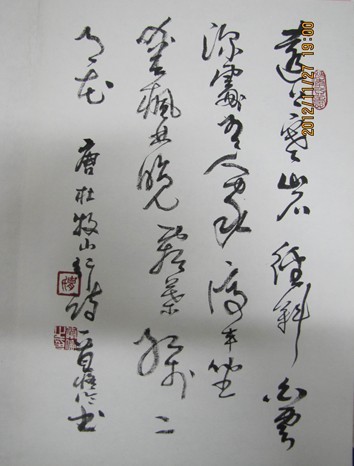 遠上寒山石徑斜白雲
深處有人家停車坐
愛楓林晚霜葉紅於二
月花
唐杜牧山行詩一首書
2012/11/27 19:00